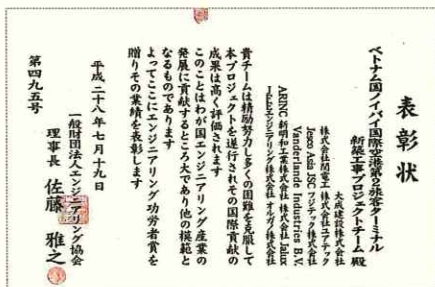 表彰状
ベトナム国ノイバイ国際空港第2旅客ターミナル
新築工事プロジェクトチーム 殿
大成建設株式会社
株式会社関電工 株式会社エアテック
Jesco Asia JSC フジテック株式会社
Vanderlande Industries B.V.
ARINC 新明和工業株式会社 株式会社 Jalux
エンジニアリング株式会社 オルガノ株式会社
貴チームは精励努力し多くの困難を克服して
本プロジェクトを遂行されその国際貢献の
成果は高く評価されます
このことはわが国エンジニアリング産業の
発展に貢献するところ大であり他の模範と
なるものであります
よってここにエンジニアリング功労者賞を
贈りその業績を表彰します
平成二十八年七月十九日
一般財団法人エンジニアリング協会
理事長 佐藤 雅之
第四九五号